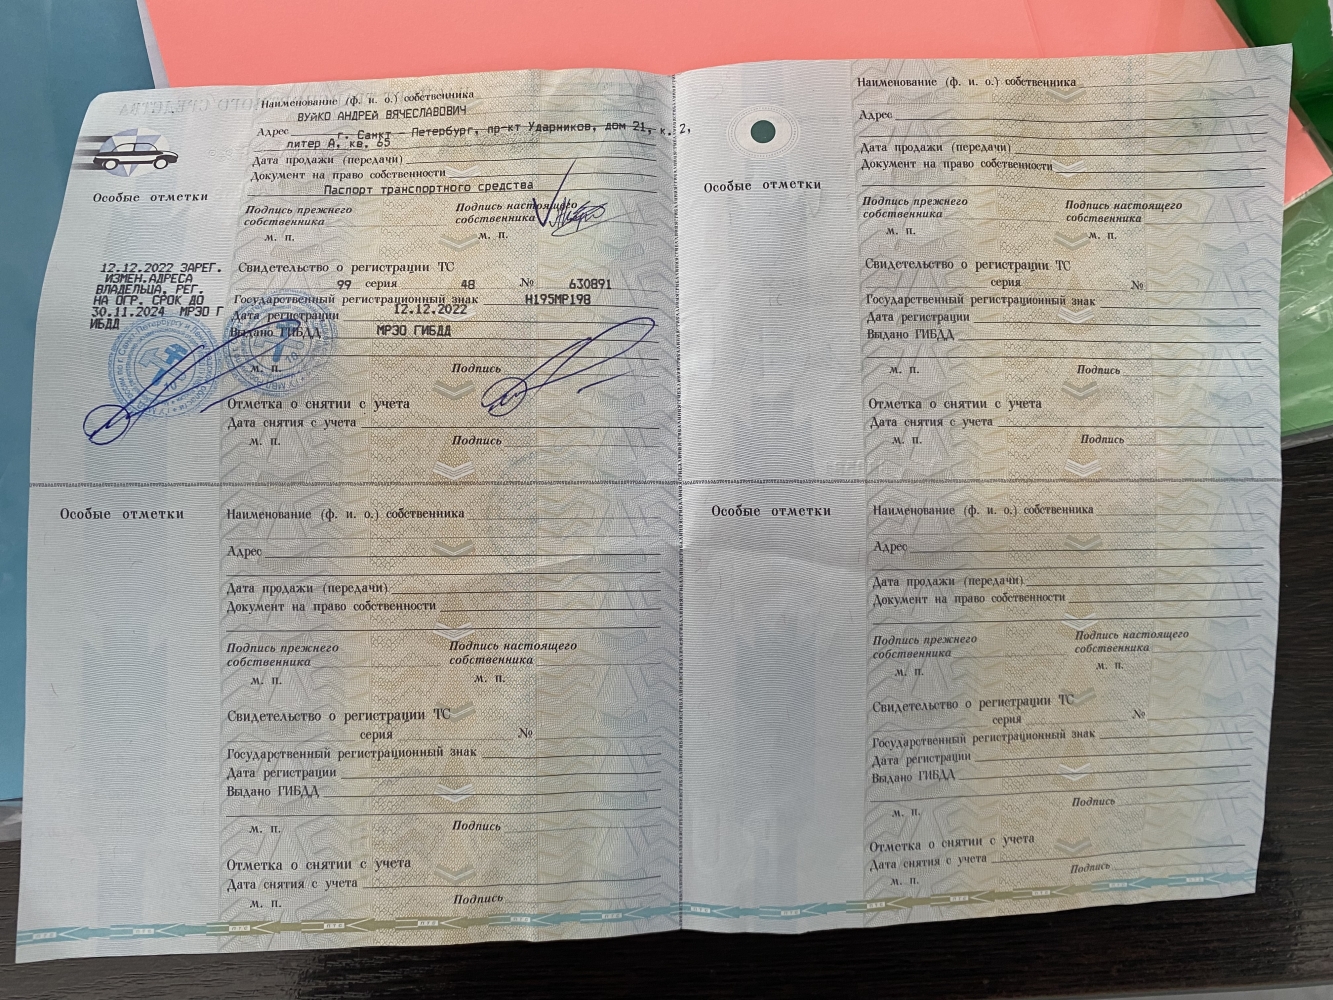 Особые отметки
12.12.2022 ЗАРЕГ.
ИЗМЕН.АДРЕСА
ВЛАДЕЛЬЦА, РЕГ.
НА ОГР. СРОК ДО
30.11.2024 МРЭО Г
ИБДД
Наименование (ф. и. о.) собственника
ВУЙКО АНДРЕЙ ВЯЧЕСЛАВОВИЧ
Адрес г. Санкт - Петербург, пр-кт Ударников, дом 21, к. 2,
литер А. кв. 65
Дата продажи (передачи)
Документ на право собственности
Паспорт транспортного средства
Подпись прежнего собственника
Подпись настоящего собственника
м. п.
м. п.
Свидетельство о регистрации ТС
99 серия 48 № 630891
Государственный регистрационный знак Н195МР198
Дата регистрации 12.12.2022
Выдано ГИБДД МРЭО ГИБДД
м. п.
Подпись
Отметка о снятии с учета
Дата снятия с учета
м. п.
Подпись
Особые отметки
Наименование (ф. и. о.) собственника
Адрес
Дата продажи (передачи)
Документ на право собственности
Подпись прежнего собственника
Подпись настоящего собственника
м. п.
м. п.
Свидетельство о регистрации ТС
серия №
Государственный регистрационный знак
Дата регистрации
Выдано ГИБДД
м. п.
Подпись
Отметка о снятии с учета
Дата снятия с учета
м. п.
Подпись
Особые отметки
Наименование (ф. и. о.) собственника
Адрес
Дата продажи (передачи)
Документ на право собственности
Подпись прежнего собственника
Подпись настоящего собственника
м. п.
м. п.
Свидетельство о регистрации ТС
серия №
Государственный регистрационный знак
Дата регистрации
Выдано ГИБДД
м. п.
Подпись
Отметка о снятии с учета
Дата снятия с учета
м. п.
Подпись
Особые отметки
Наименование (ф. и. о.) собственника
Адрес
Дата продажи (передачи)
Документ на право собственности
Подпись прежнего собственника
Подпись настоящего собственника
м. п.
м. п.
Свидетельство о регистрации ТС
серия №
Государственный регистрационный знак
Дата регистрации
Выдано ГИБДД
м. п.
Подпись
Отметка о снятии с учета
Дата снятия с учета
м. п.
Подпись